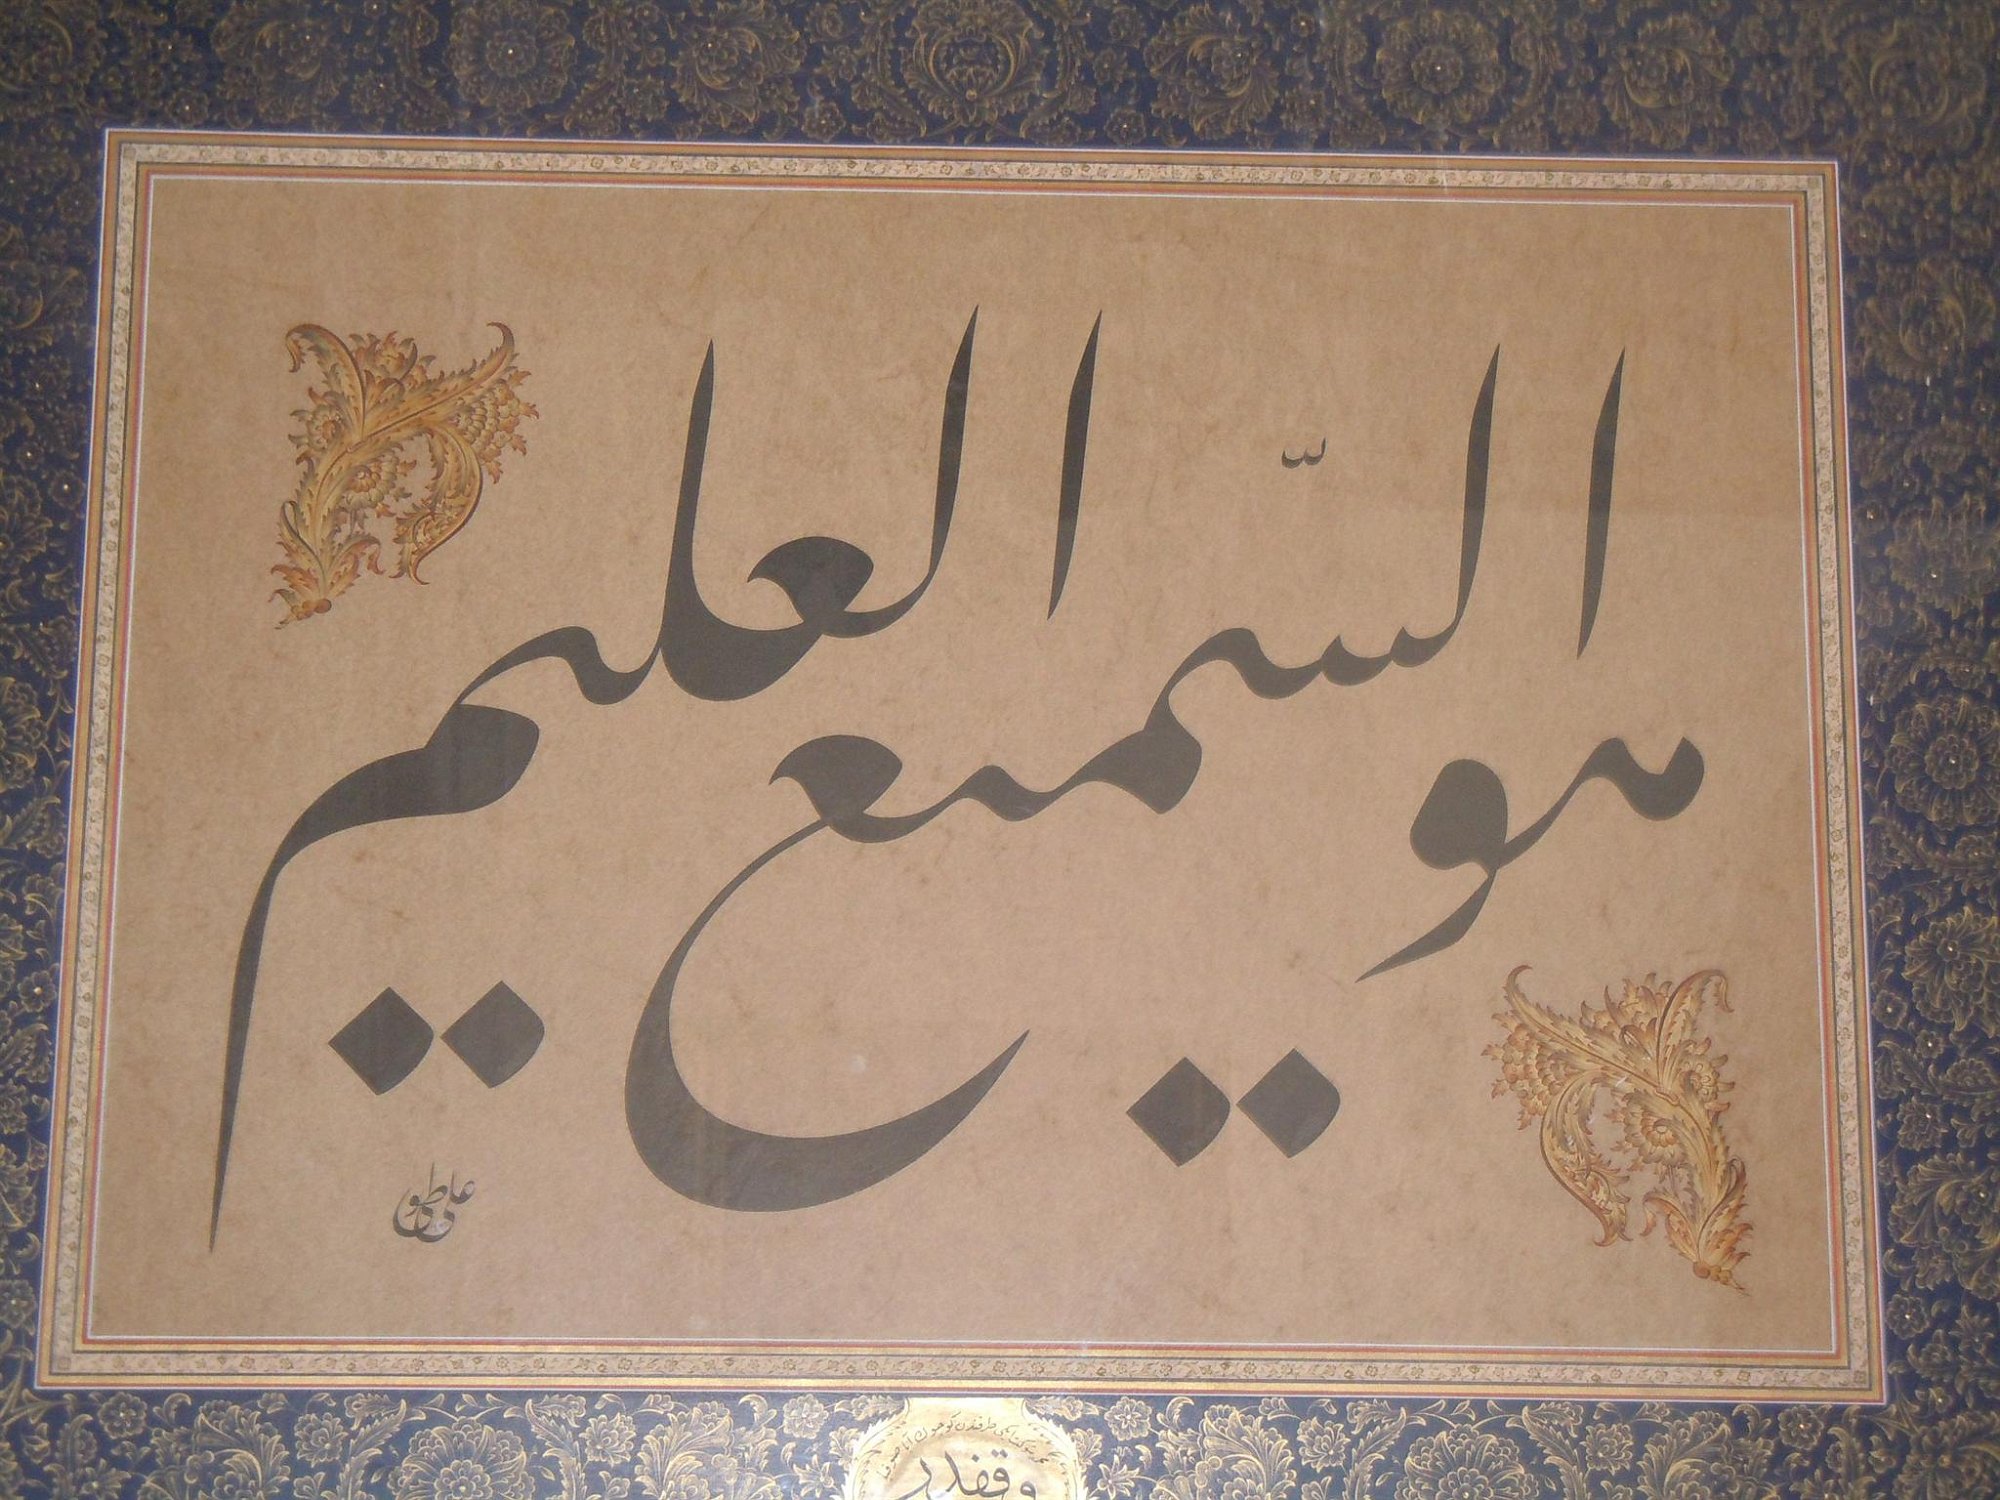 هو السّميع العليم
علی طوی
وقفدر